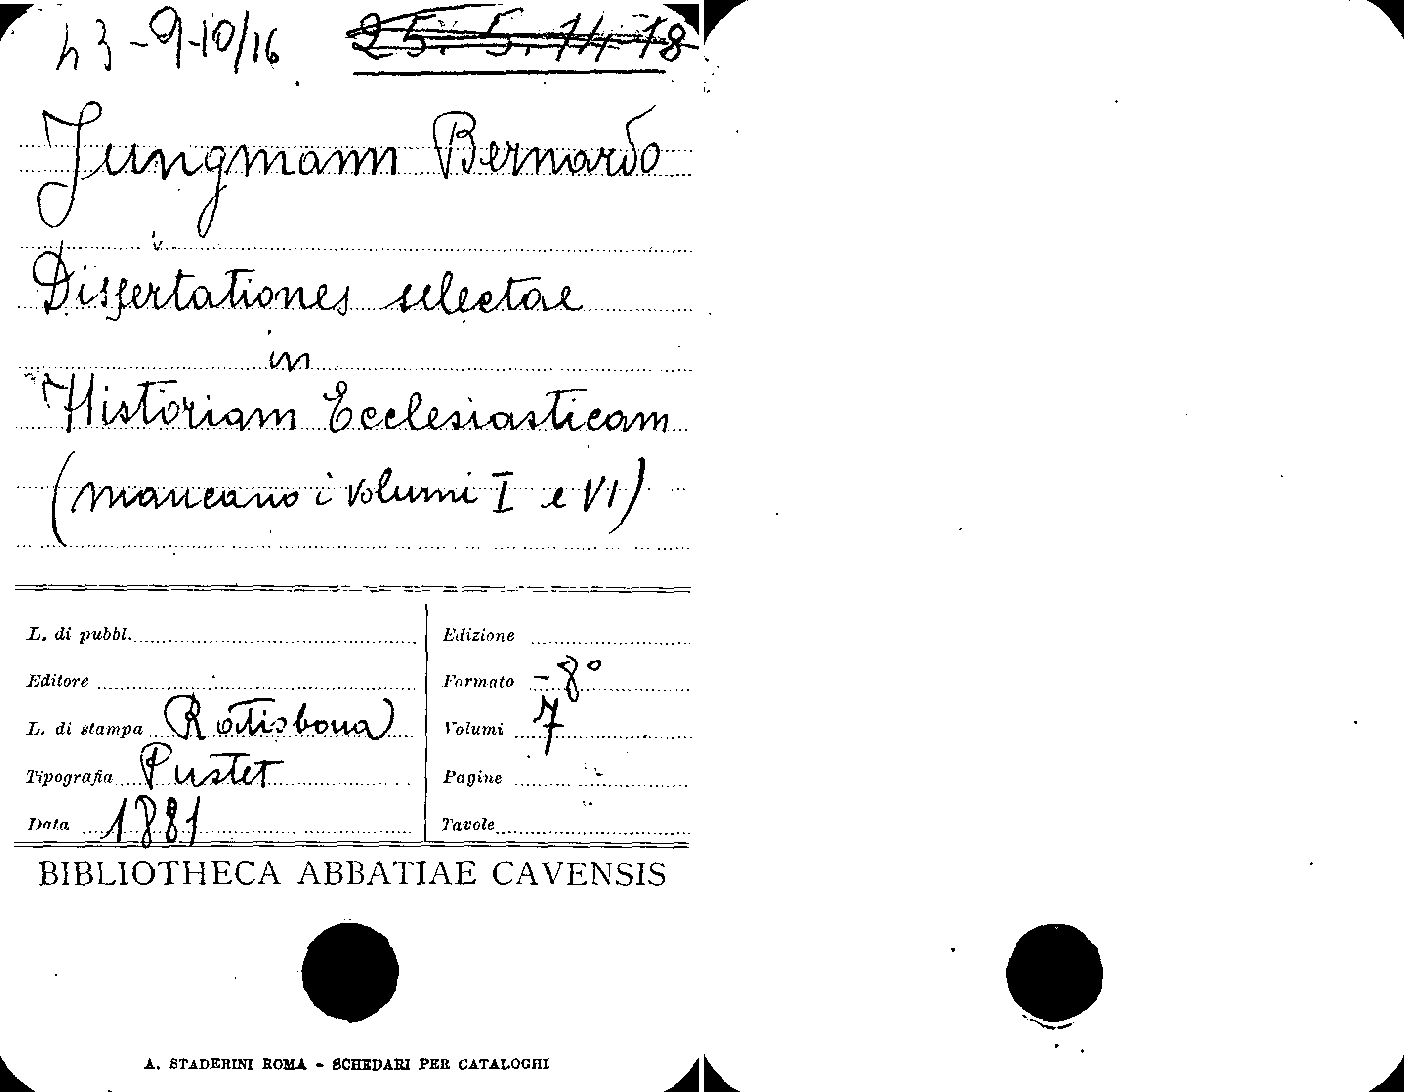 43-9-10/16 25. 5. 14-18
Jungmann Bernardo
Dissertationes selectae
in
Historiam Ecclesiasticam
(mancano i volumi I e VI)
L. di pubbl. Edizione
Editore Formato -8°
L. di stampa Ratisbona Volumi 7
Tipografia Pustet Pagine
Data 1881 Tavole
BIBLIOTHECA ABBATIAE CAVENSIS
A. STADERINI ROMA - SCHEDARI PER CATALOGHI